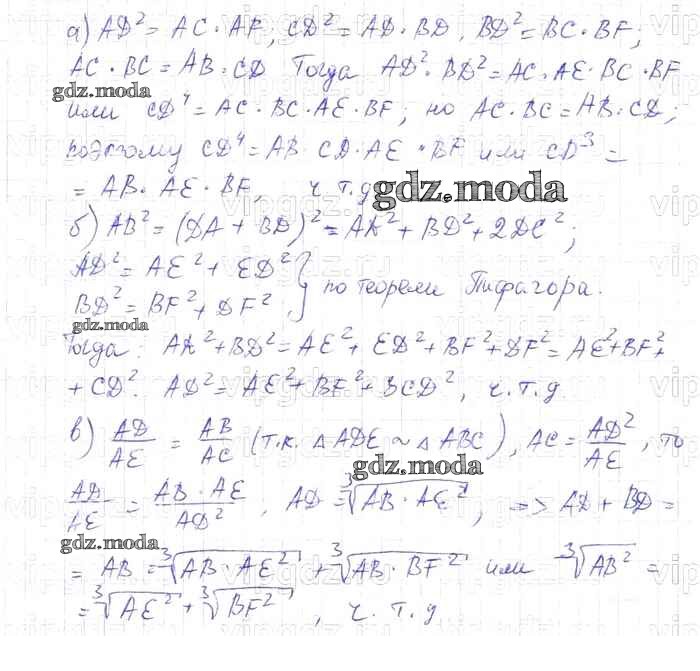 а) AD² = AC · AF, CD² = AD · BD, BD² = BC · BF;
AC · BC = AB · CD Тогда AD² · BD² = AC · AE · BC · BF
gdz.moda
или CD⁴ = AC · BC · AE · BF; но AC · BC = AB · CD,
поэтому CD⁴ = AB · CD · AE · BF или CD³ =
= AB · AE · BF, ч. т. д
gdz.moda
б) AB² = (DA + BD)² = AK² + BD² + 2DC²;
AD² = AE² + ED²
BD² = BF² + DF², } по теореме Пифагора.
gdz.moda
Тогда: AK² + BD² = AE² + ED² + BF² + DF² = AE² + BF² +
+ CD². AD² = AE² + BF² + 3CD², ч. т. д
в) AD/AE = AB/AC (т.к. △ADE ~ △ABC), AC = AD²/AE, то
gdz.moda
AD/AE = AB · AE/AD², AD = ∛AB · AE², => AD + BD =
gdz.moda
= AB = ∛AB · AE² + ∛AB · BF² или ∛AB² =
= ∛AE² + ∛BF², ч. т. д